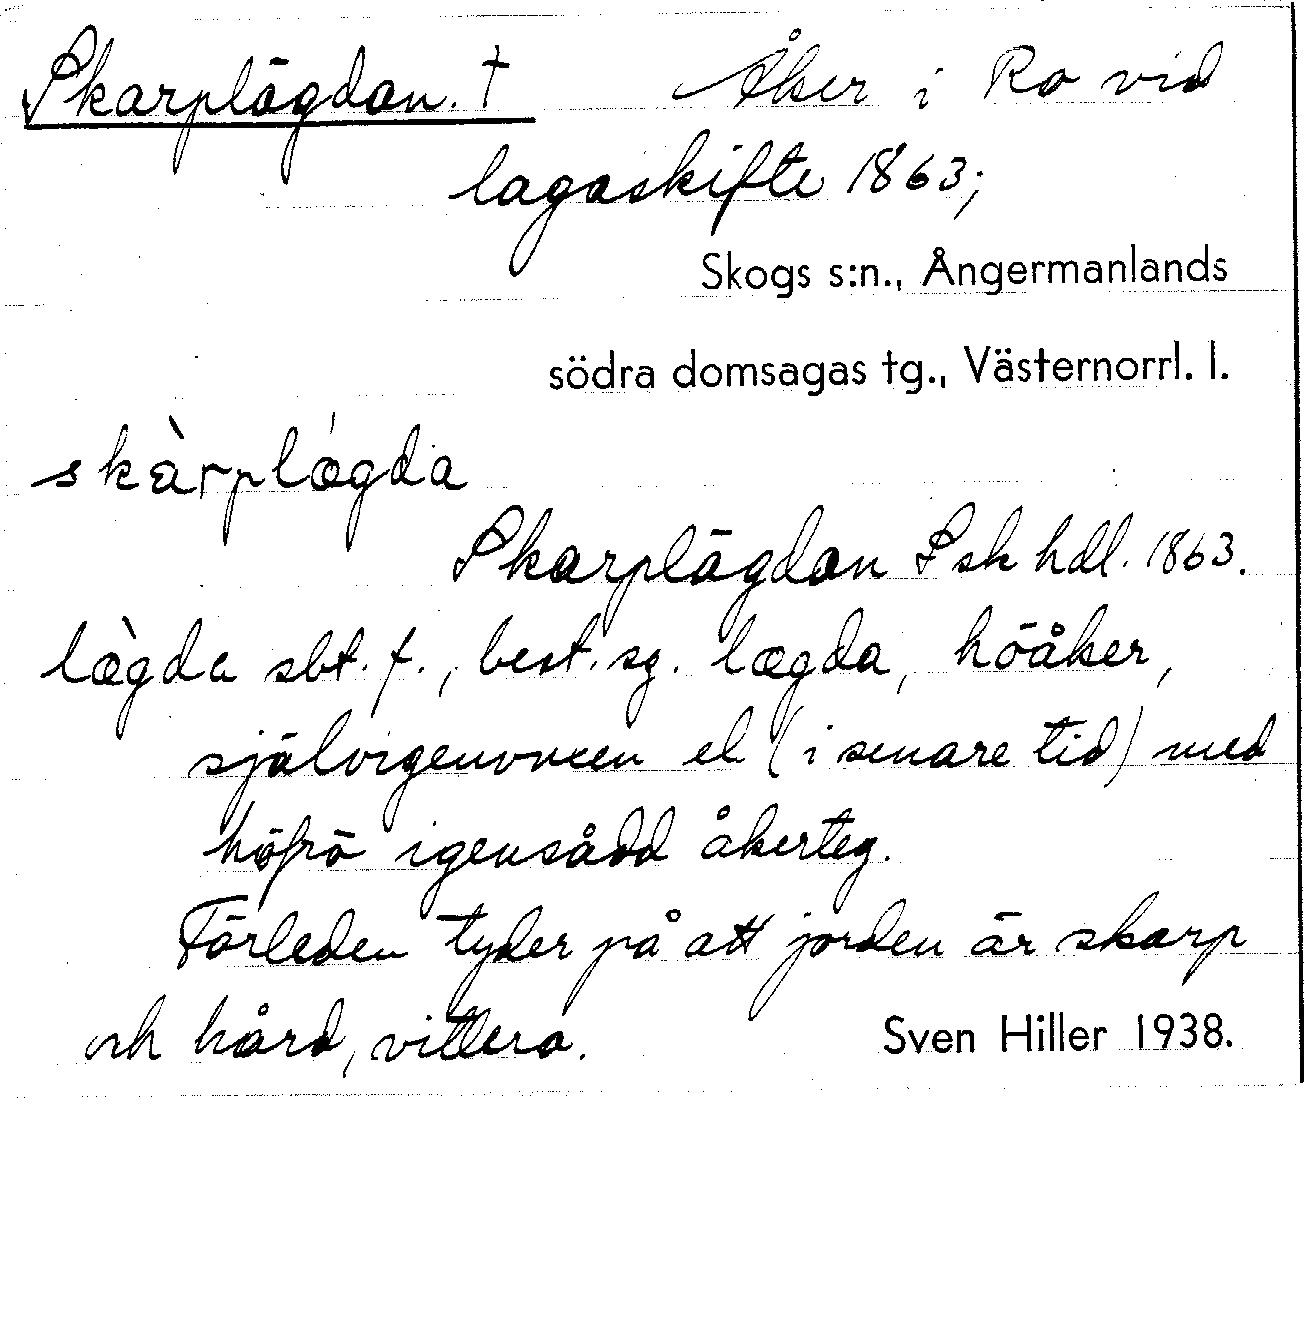 Skarplägdan. † Åker i Ro vid
lagaskifte 1863;
Skogs s:n., Ångermanlands
södra domsagas tg., Västernorrl. l.
skàrplǽgda
Skarplägdan Lsk hdl. 1863.
læ̀gda sbt. f., best. sg. lægda, höåker,
självigenvuxen el (i senare tid) med
höfrö igensådd åkerteg.
Förleden tyder på att jorden är skarp
och hård, vittera.
Sven Hiller 1938.